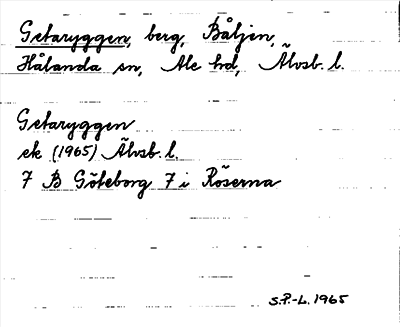 Getaryggen, berg, Båljen,
Hålanda sn, Ale hd, Älvsb. l.
Getaryggen
ek (1965) Älvsb. l.
7 B Göteborg 7 i Röserna
S.P.-L. 1965